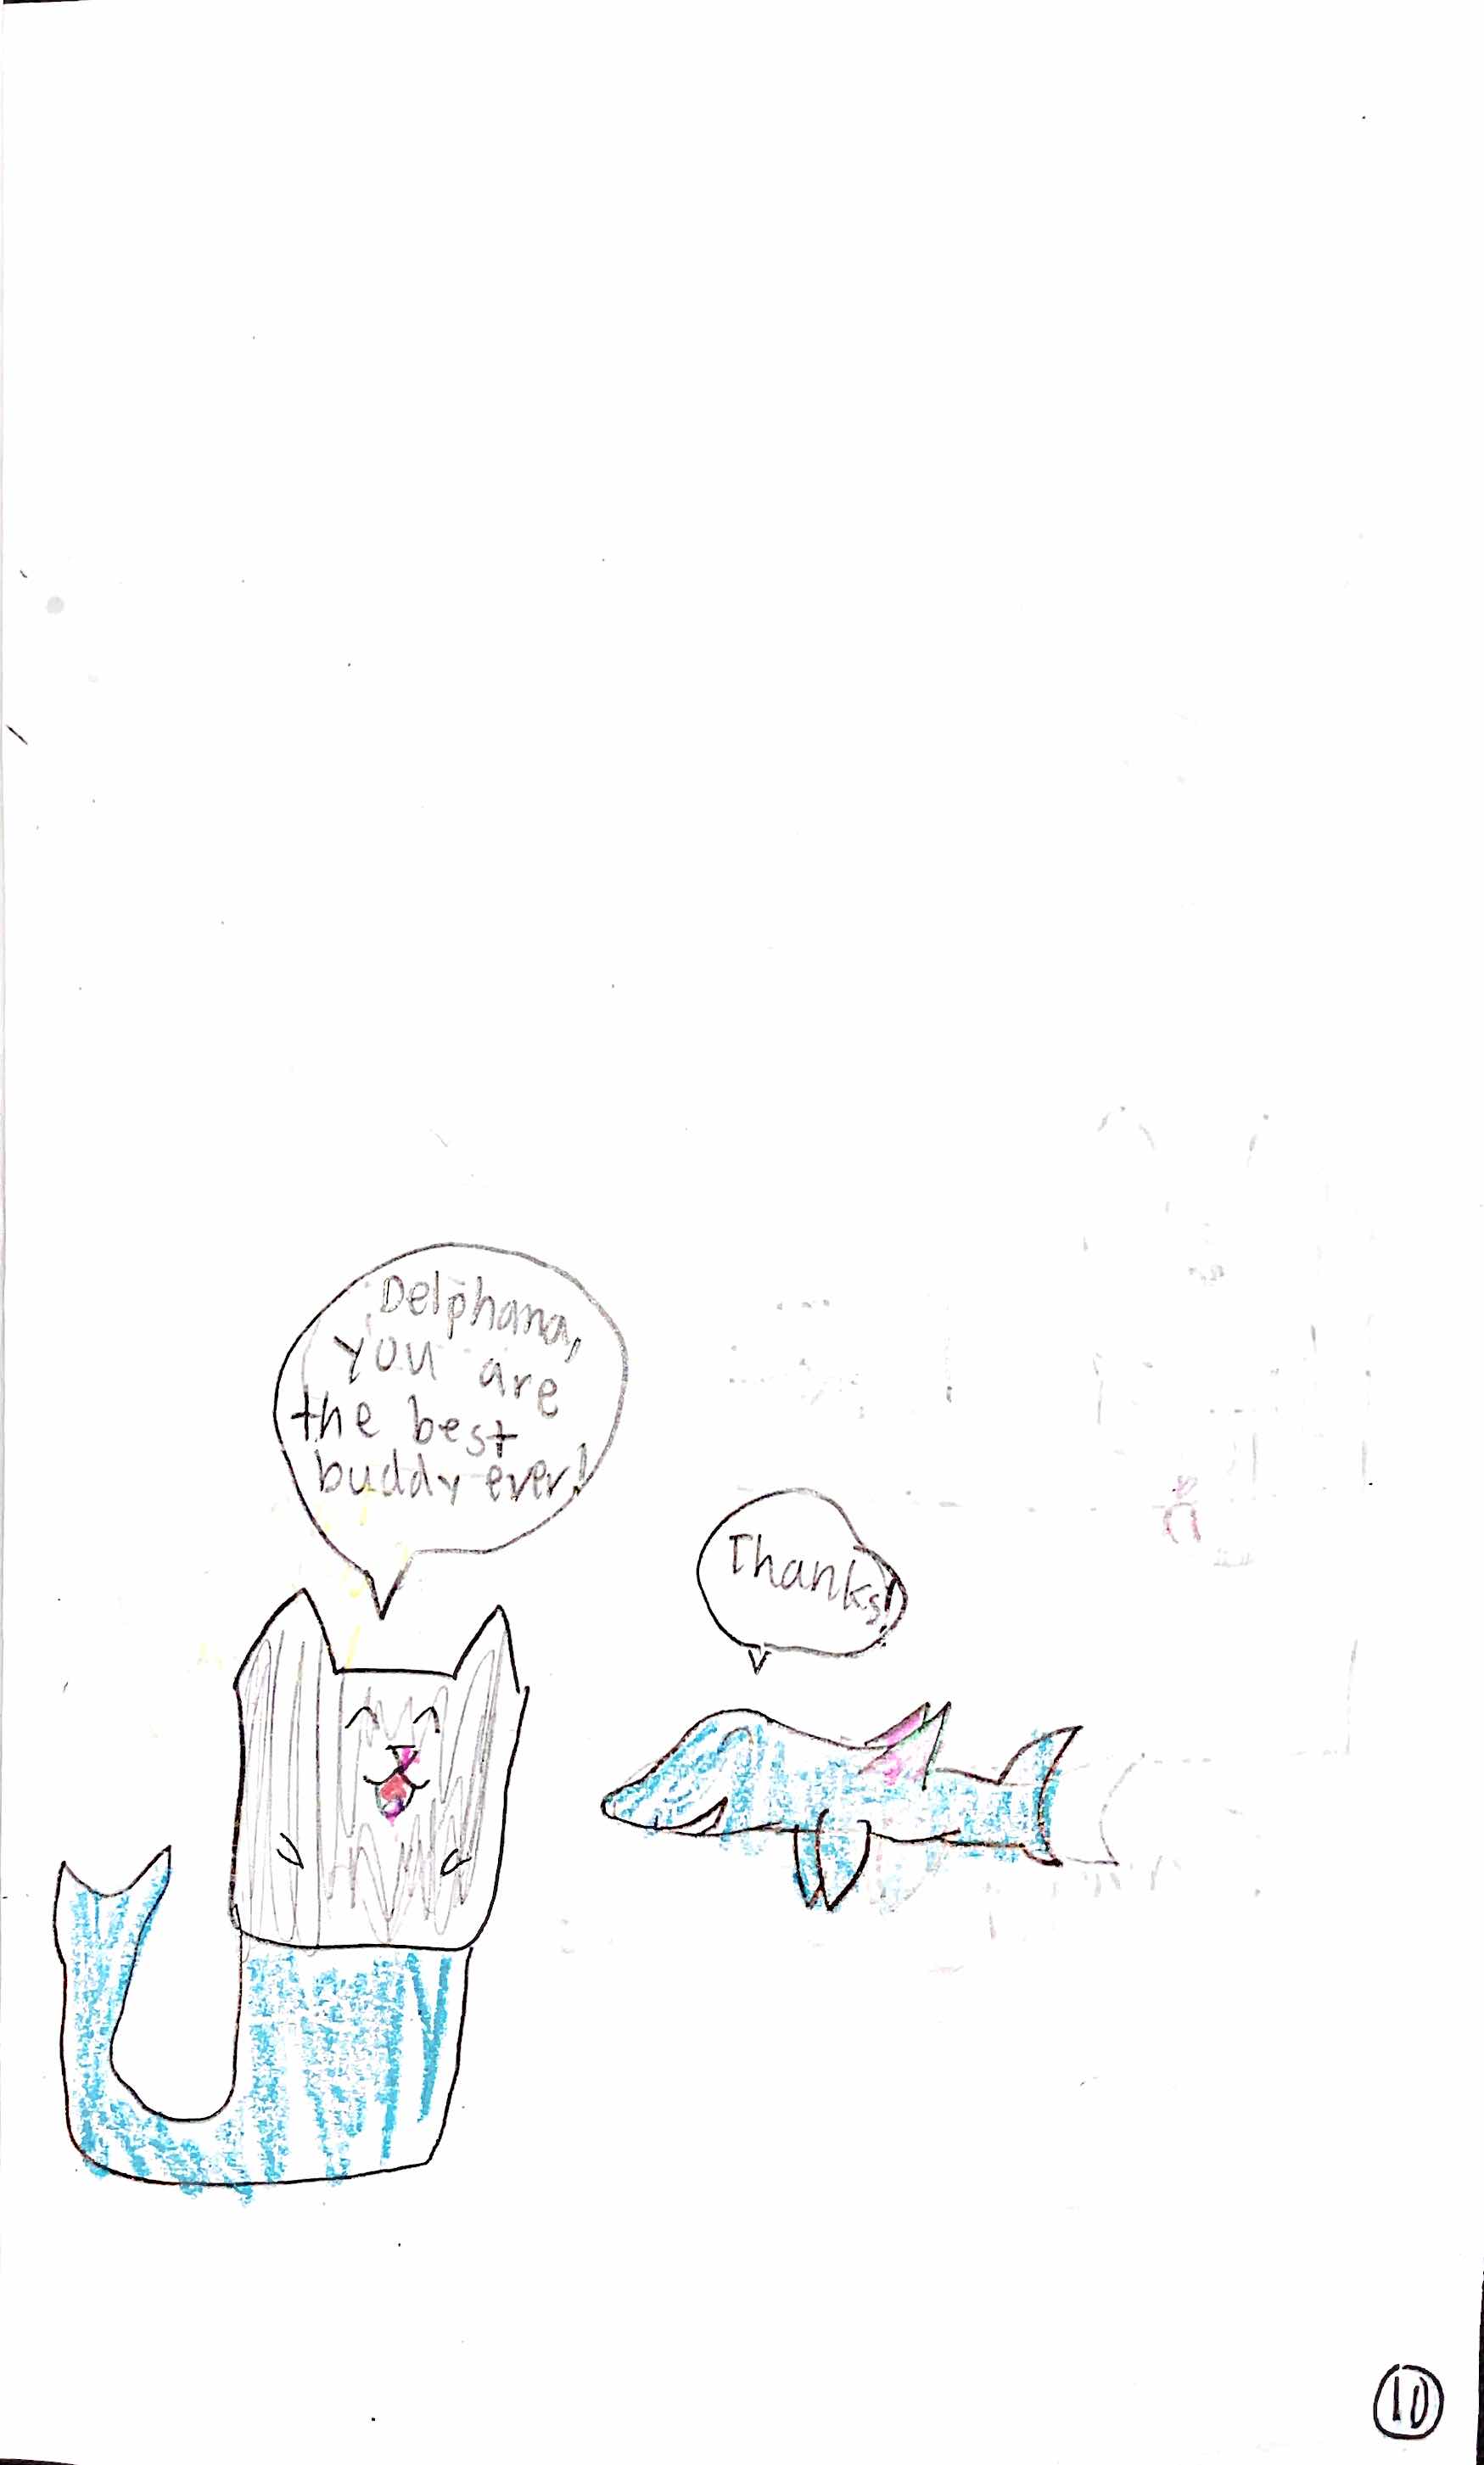 Delphana,
you are
the best
buddy ever!
Thanks!
10